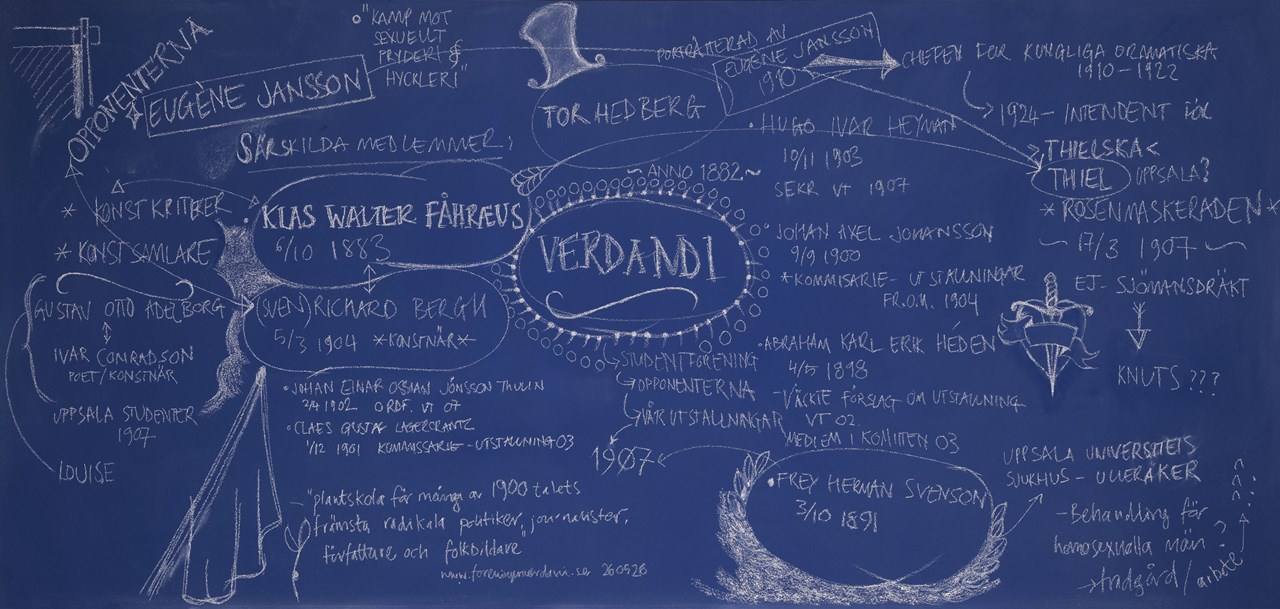 OPPONENTERNA
EUGÈNE JANSSON
"KAMP MOT
SEXUELLT
PRYDERI &
HYCKLERI"
SÄRSKILDA MEDLEMMER:
* KONSTKRITIKER
* KONSTSAMLARE
KLAS WALTER FÅHRÆUS
6/10 1883
(SVEN) RICHARD BERGH
5/3 1904 *KONSTNÄR*
GUSTAV OTTO ADELBORG
IVAR CONRADSON
POET/KONSTNÄR
UPPSALA STUDENTER
1907
LOUISE
• JOHAN EINAR OSSIAN JÓNSSON THULIN
1902 ORDF. VT 07
• CLAES GUSTAF LAGERCRANTZ
1/12 1901 KOMMISSARIE - UTSTÄLLNING 03
- "plantskola för många av 1900 talets
främsta radikala politiker, journalister,
författare och folkbildare"
www.foreningenverdandi.se 260526
TOR HEDBERG
PORTRÄTTERAD AV
EUGÈNE JANSSON
1910
CHEFEN FÖR KUNGLIGA DRAMATISKA
1910-1922
1924- INTENDENT FÖR
>THIELSKA<
THIEL UPPSALA?
*ROSENMASKERADEN*
~ 17/3 1907 ~
EJ- SJÖMANSDRÄKT
KNUTS ???
~ ANNO 1882 ~
VERDANDI
STUDENTFÖRENING
OPPONENTERNA
VÅR UTSTÄLLNINGAR
1907
• HUGO IVAR HEYMAN
10/11 1903
SEKR VT 1907
• JOHAN AXEL JOHANSSON
9/9 1900
*KOMMISARIE- UTSTÄLLNINGAR
FR.O.M. 1904
• ABRAHAM KARL ERIK HEDÉN
4/5 1898
- VÄCKTE FÖRSLAG OM UTSTÄLLNING
VT 02.
MEDLEM I KOMITEN 03
• FREY HERMAN SVENSON
3/10 1891
UPPSALA UNIVERSITETS
SJUKHUS - ULLERÅKER
- Behandling för
homosexuella män ?
→ trädgård/arbete